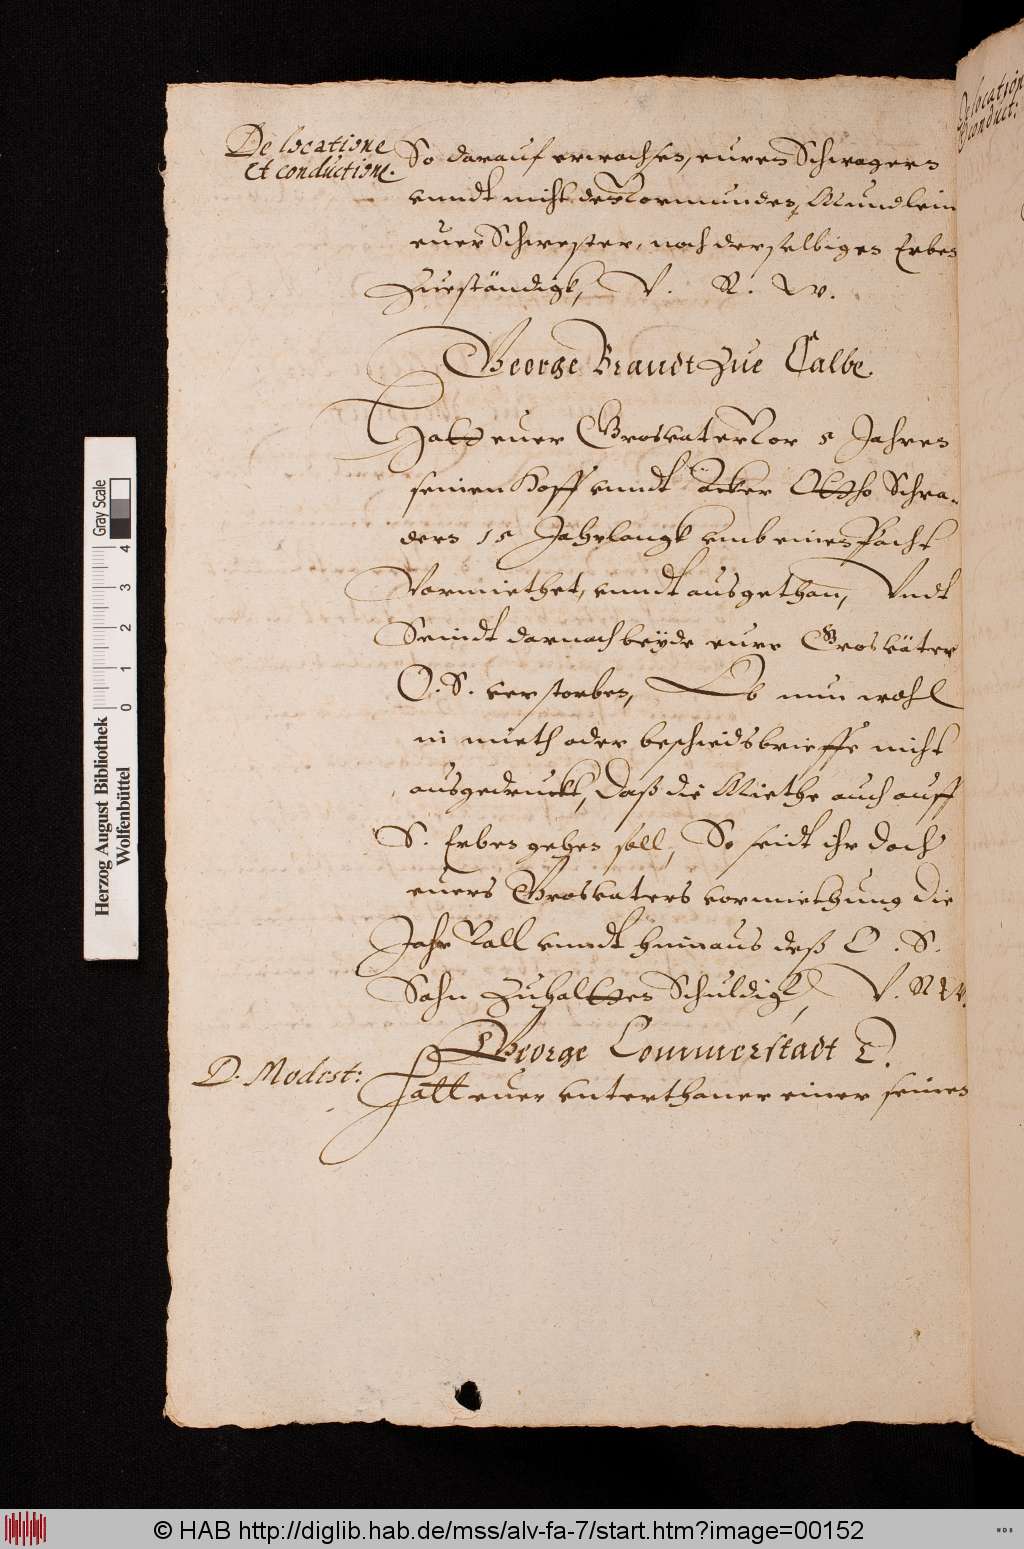 De locatione
Et conductione.
So darauf erwachsen, euren Schwagern
unndt nicht des Vormunden, Mundlein
euer Schwester, noch derselbigen Erben
Zueständigk, V. R. W.
George Brandt Zue Calbe.
Hatt euer Grosvater Vor 5 Jahren
seinen Hoff unndt Äcker Ottho Schra-
dern 15 Jahrlangk umb einen Pacht
Vormiethet, unndt ausgethan, Undt
Seindt darnach beÿde eure Grosväter
O. S. verstorben, Ob nun wohl
in mieth oder bescheidsbrieffe nicht
ausgedruckt, Daß die Miethe auch auff
S. Erben gehen soll, So seidt ihr doch
euers Grosvaters vormiethung die
Jahr Vall unndt hinaus deß O. S.
Sohn Zuhalten Schuldigk, V. R W.
George Commerstadt D.
D. Modest:
Hatt euer unterthaner einer seinen
De location
Et conduct:
Herzog August Bibliothek
Wolfenbüttel
0 1 2 3 4
Gray Scale
© HAB http://diglib.hab.de/mss/alv-fa-7/start.htm?image=00152